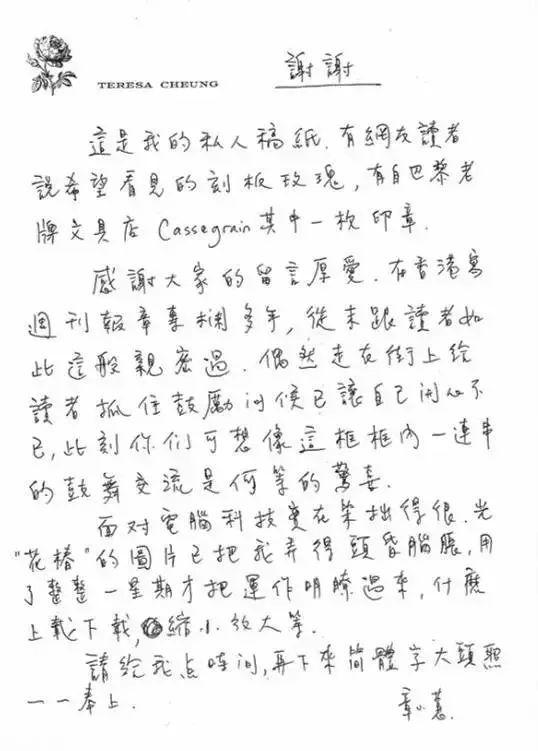 TERESA CHEUNG
謝謝
這是我的私人稿紙.有網友讀者
說希望看見的刻板玫瑰,有自巴黎老
牌文具店Cassegrain其中一枚印章.
感謝大家的留言厚愛.在香港寫
週刊報章專欄多年,從未跟讀者如
此這般親密過.偶然走在街上给
讀者抓住鼓勵问候已讓自己闭心不
已,此刻你们可想像這框框内一連串
的鼓舞交流是何等的驚喜.
面对電腦科技實在笨拙得很.光
"花椿"的圖片已把我弄得頭昏腦脹,用
了整整一星期才把運作明瞭過來,什麽
上載下載,縮小放大等.
請给我点时间,再下來简體字大頭照
一一奉上.
章小蕙.